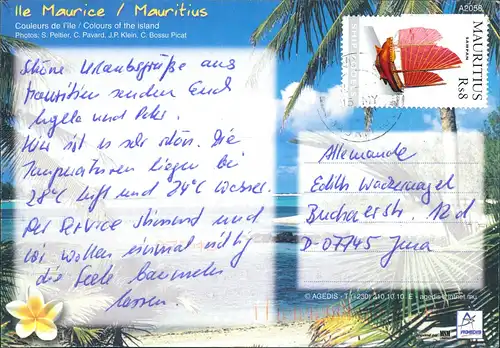 Ile Maurice / Mauritius
Couleurs de l'île / Colours of the island
Photos: S. Peltier, C. Pavard, J.P. Klein, C. Bossu Picat
A2056
MAURITIUS
SAMPAN
Rs8
Schöne Urlaubsgrüße aus
Mauritius senden Euch
Angela und Peter.
Hier ist es sehr schön. Die
Temperaturen liegen bei
28°C Luft und 24°C Wasser.
Der Service stimmt und
wir wollen einmal richtig
die Seele baumeln
lassen.
Allemande
Edith Wackernagel
Bucherstr. 12d
D-07745 Jena
© AGEDIS - T (+230)
Powered by
AGEDIS